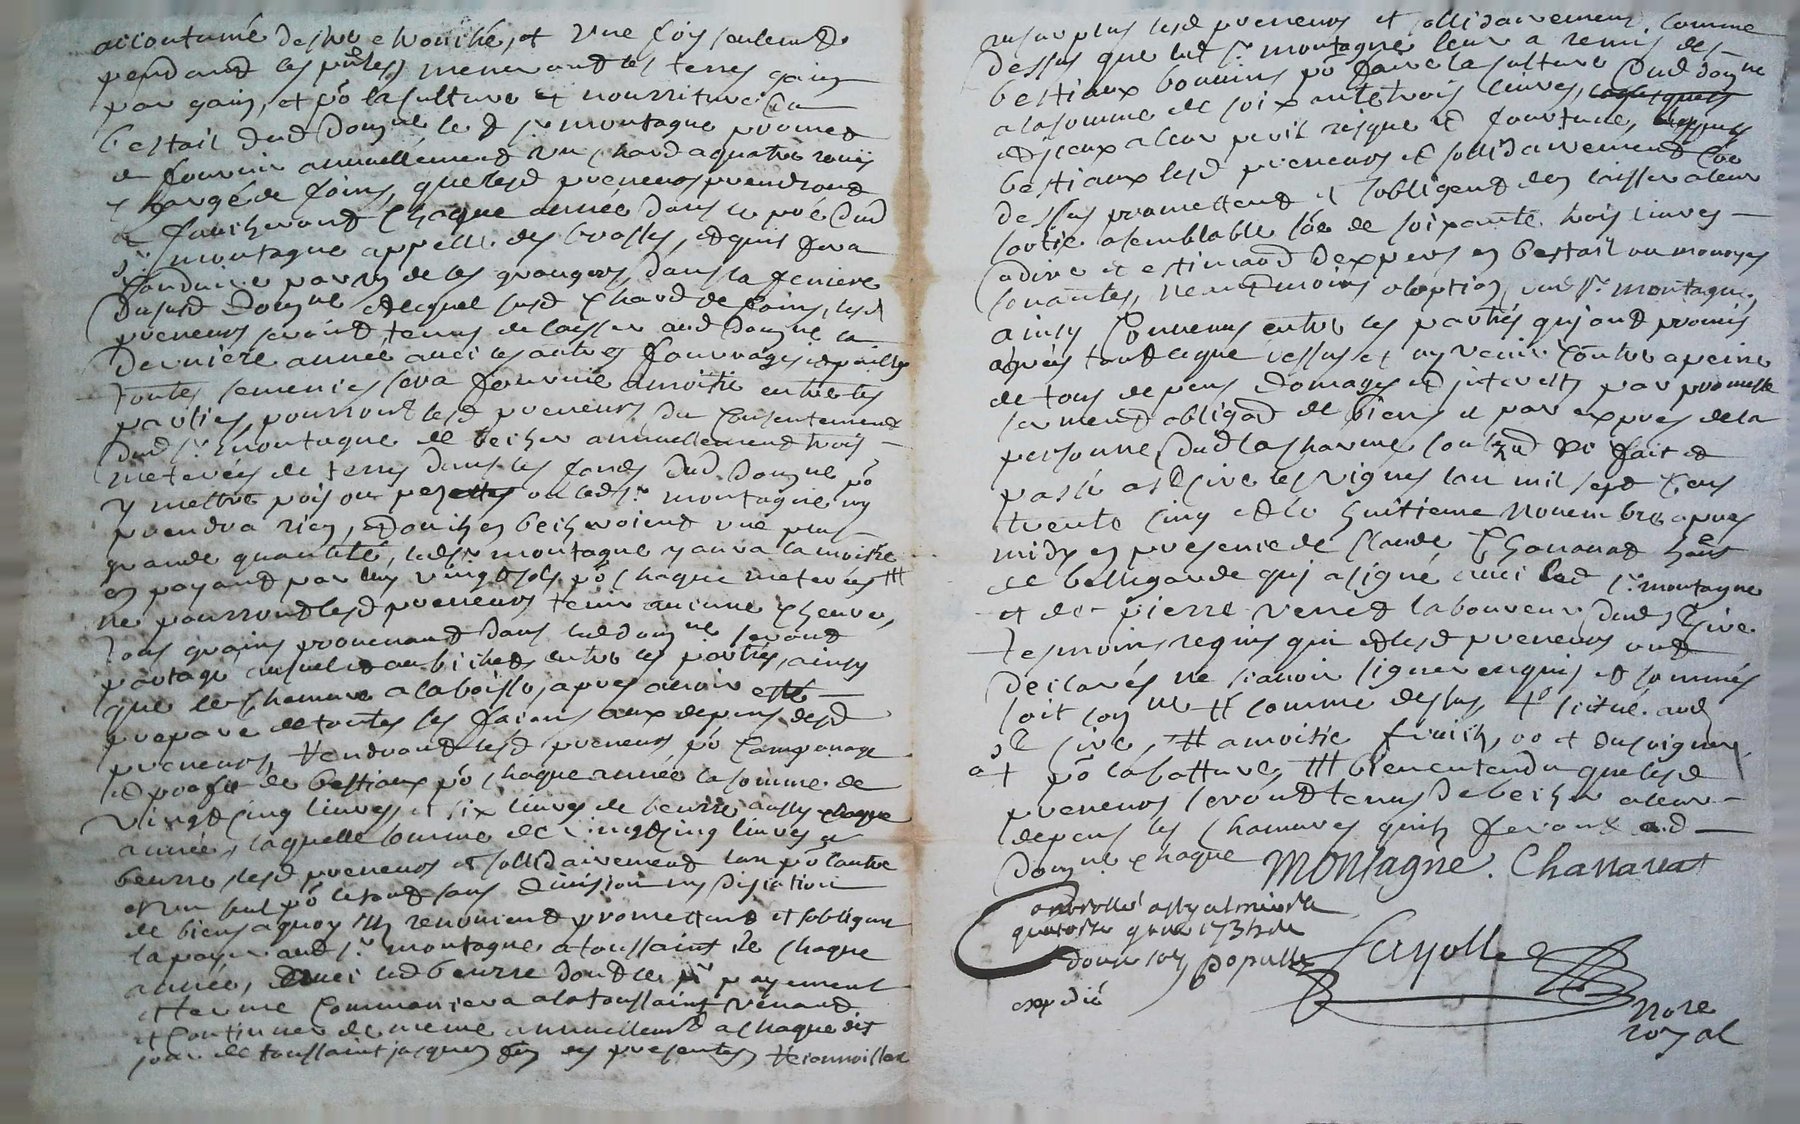 accoutumé destre chonché, et une fois seulement
pendant les pntes, meneront les terres gain
par gain, et po la culture et nourriture du
bestail dud domne led sr montagne promet
de fournir annuellement un chard a quatre roues
chargé de foins, que lesd preneurs prendront
et faucheront chaque année dans le pré dud
sr montagne appellé des brosses, et quil fera
conduire par un de ses grangers, dans la feniere
dususd domne, et lequel susd chard de foins, lesd
preneurs seront tenus de laisser aud domne la
derniere année avec les autres fourrages et pailles
toutes semences sera fournie a moitié entre les
parties, pourront lesd preneurs du consentement
dud sr montagne de becher annuellement trois
meterées de terres dans les fonds dud domne po
y mettre pois ou pezettes ou led sr montagne ny
prendra rien, et ou ils en becheroient une plus
grande quantité, led sr montagne y aura la moitié
en payant par luy vingt sols po chaque meterées ttt
ne pourront lesd preneurs tenir aucune chevre,
tous grains provenant dans led domne seront
partagé au bichet entre les parties, ainsy
que le chanvre a la boisle, apres avoir esté
preparé de toutes les façons aux depens desd
preneurs, rendront lesd preneurs po
et profit de bestiaux po chaque année la somme de
vingt cinq livres, et six livres de beurre aussy chaque
année, laquelle somme de vingt cinq livres et
beurre lesd preneurs et sollidairement lun po lautre
et un seul po le tout sans division ny discution
de biens a quoy ils renoncent promettent et sobligent
la payer aud sr montagne a toussaint de chaque
année, avec led beurre dont le pr payement
et terme commencera a la toussaint venant
et continuer de meme annuellemt a chaque dit
jour de toussaint jusques fin des presentes, reconnoissent
au surplus lesd preneurs et sollidairement comme
dessus que led sr montagne leur a remis des
bestiaux bovins po faire la culture dud domne
a la somme de soixante trois livres,
et iceux a leur peril risque et fortune,
bestiaux lesd preneurs et sollidairement coe
dessus promettent et sobligent den laisser a leur
sortie a semblable soe de soixante trois livres
a dire et estimaon dexpers en bestail ou monoyes
sonantes, neantmoins a loption dud sr montagne,
ainsy convenus entre les parties qui ont promis
agréér tout ce que dessus et ny venir contre a peine
de tous depens domages et interests par promesse
serment obligaon de biens et par expres de la
personne dud lacharme fait et
passé a st cire les vignes lan mil sept cens
trente cinq et le huitieme novembre apres
midy en presence de Claude Chavanat hant
de bellegarde qui a signé avec led sr montagne
et de pierre venet laboureur dud st cire
tesmoins requis qui et lesd preneurs ont
declarés ne scavoir signer enquis et sommés
soit con lle tt comme dessus, to scitué aud
st cire, tt a moitié fruits, oo t du soigneu
at po la batture, ttt bien entendu que lesd
preneurs seront tenus de becher a leur
depens les chanvres quils feront aud
domne chaque Montagne. Chavanat
Controllé a st galmier le
quatorze 9bre 1735 Rx
douze sols Populle
Fayolle
expedié
nore
royal